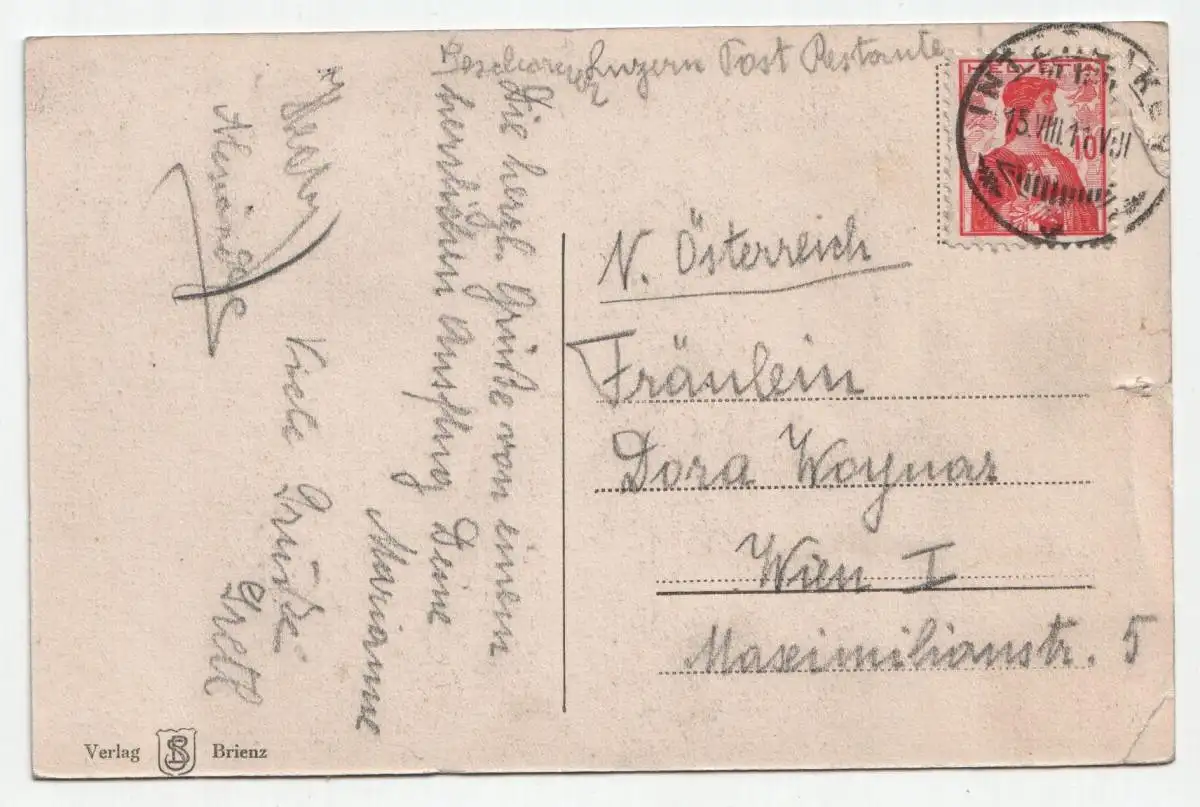 Luzern Post Restante
Die herzl. Grüße von einem
herrlichen Ausflug Deine
Marianne
Viele Grüße
Gretl
HELVETIA
10
INTERLAKEN
15.VIII.11.VIII
N. Österreich
Fräulein
Dora Woynar
Wien I
Maximilianstr. 5
Verlag Brienz